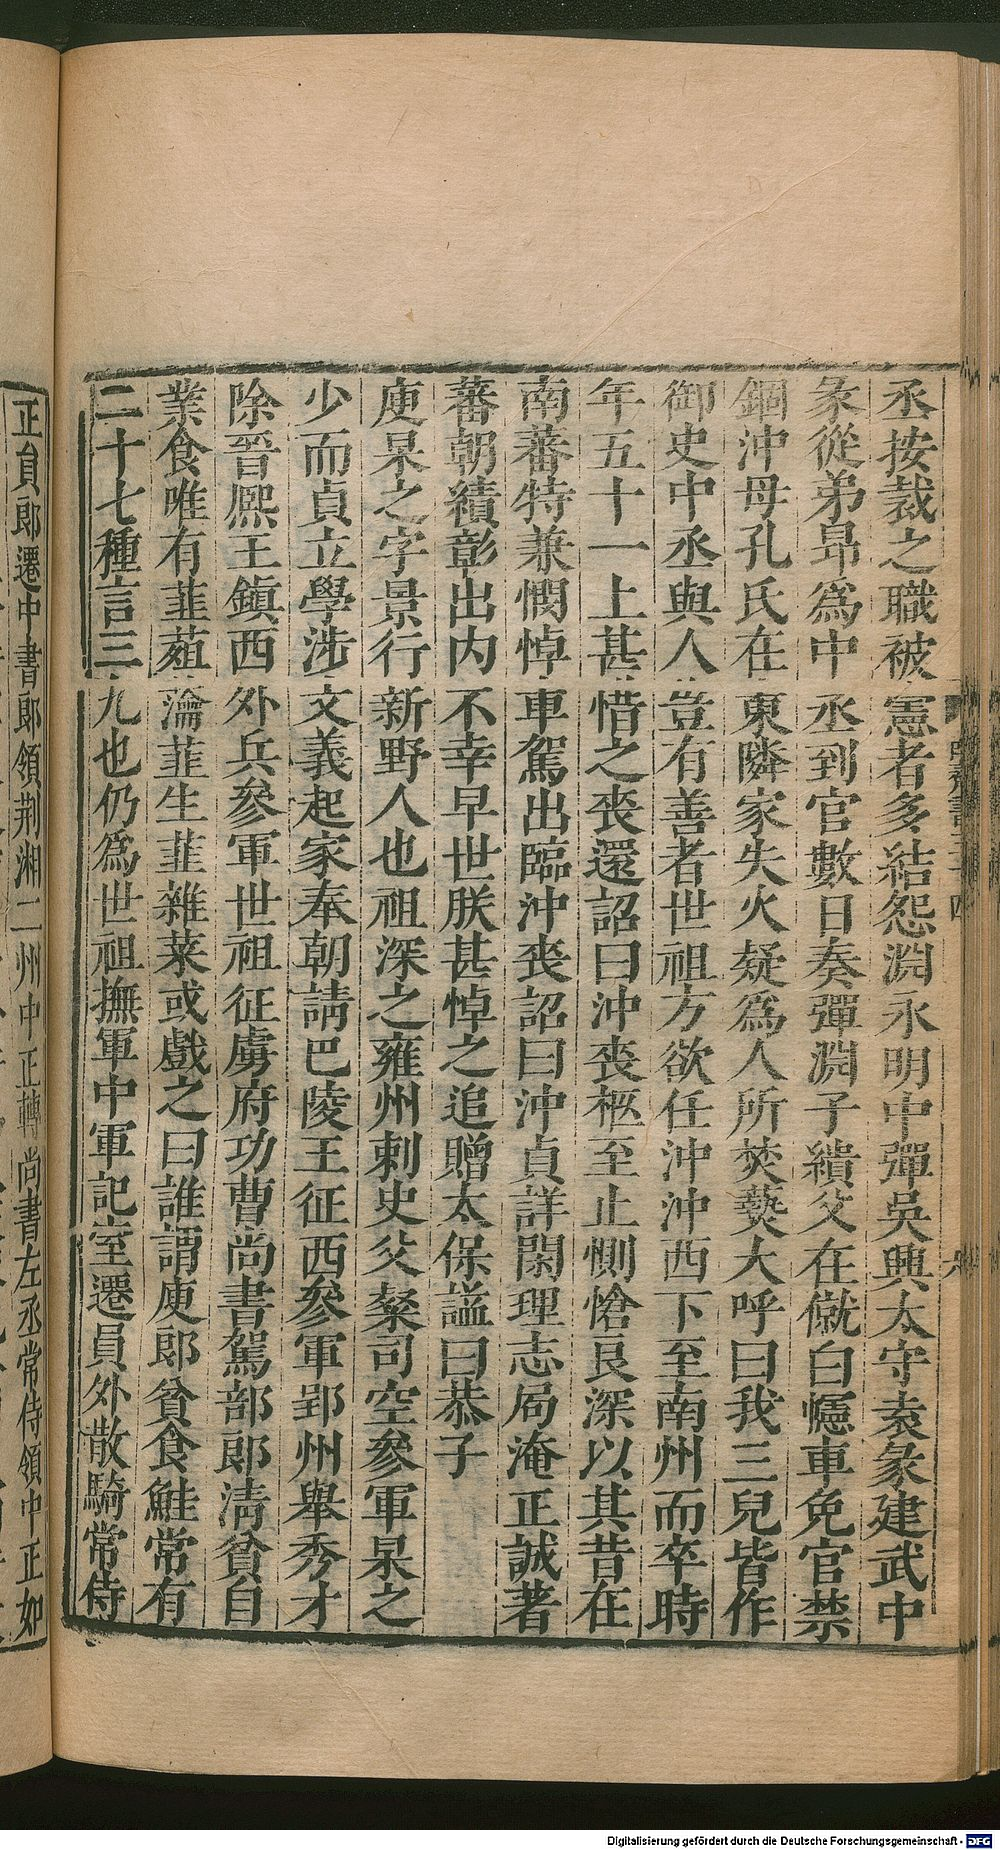 丞按裁之職被憲者多結怨淵永明中彈吳興太守袁彖建武中
彖從弟昂爲中丞到官數日奏彈淵子繢父在僦白幰車免官禁
錮沖母孔氏在東隣家失火疑爲人所焚爇大呼曰我三兒皆作
御史中丞與人豈有善者世祖方欲任沖沖西下至南州而卒時
年五十一上甚惜之喪還詔曰沖喪柩至止惻愴良深以其昔在
南蕃特兼憫悼車駕出臨沖喪詔曰沖貞詳閑理志局淹正誠著
蕃朝績彰出内不幸早世朕甚悼之追贈太保謚曰恭子
庾杲之字景行新野人也祖深之雍州刺史父粲司空參軍杲之
少而貞立學涉文義起家奉朝請巴陵王征西參軍郢州舉秀才
除晉熈王鎮西外兵參軍世祖征虜府功曹尚書駕部郎清貧自
業食唯有韮葅瀹韮生韮雜菜或戲之曰誰謂庾郎貧食鮭常有
二十七種言三九也仍爲世祖撫軍中軍記室遷員外散騎常侍
正員郎遷中書郎領荆湘二州中正轉尚書左丞常侍領中正如
Digitalisierung gefördert durch die Deutsche Forschungsgemeinschaft - DFG